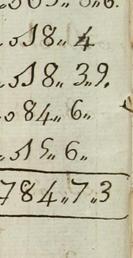 018,, 4
018,, 3,,9.
084,, 6,,
015,, 6,,
784,,7,,3